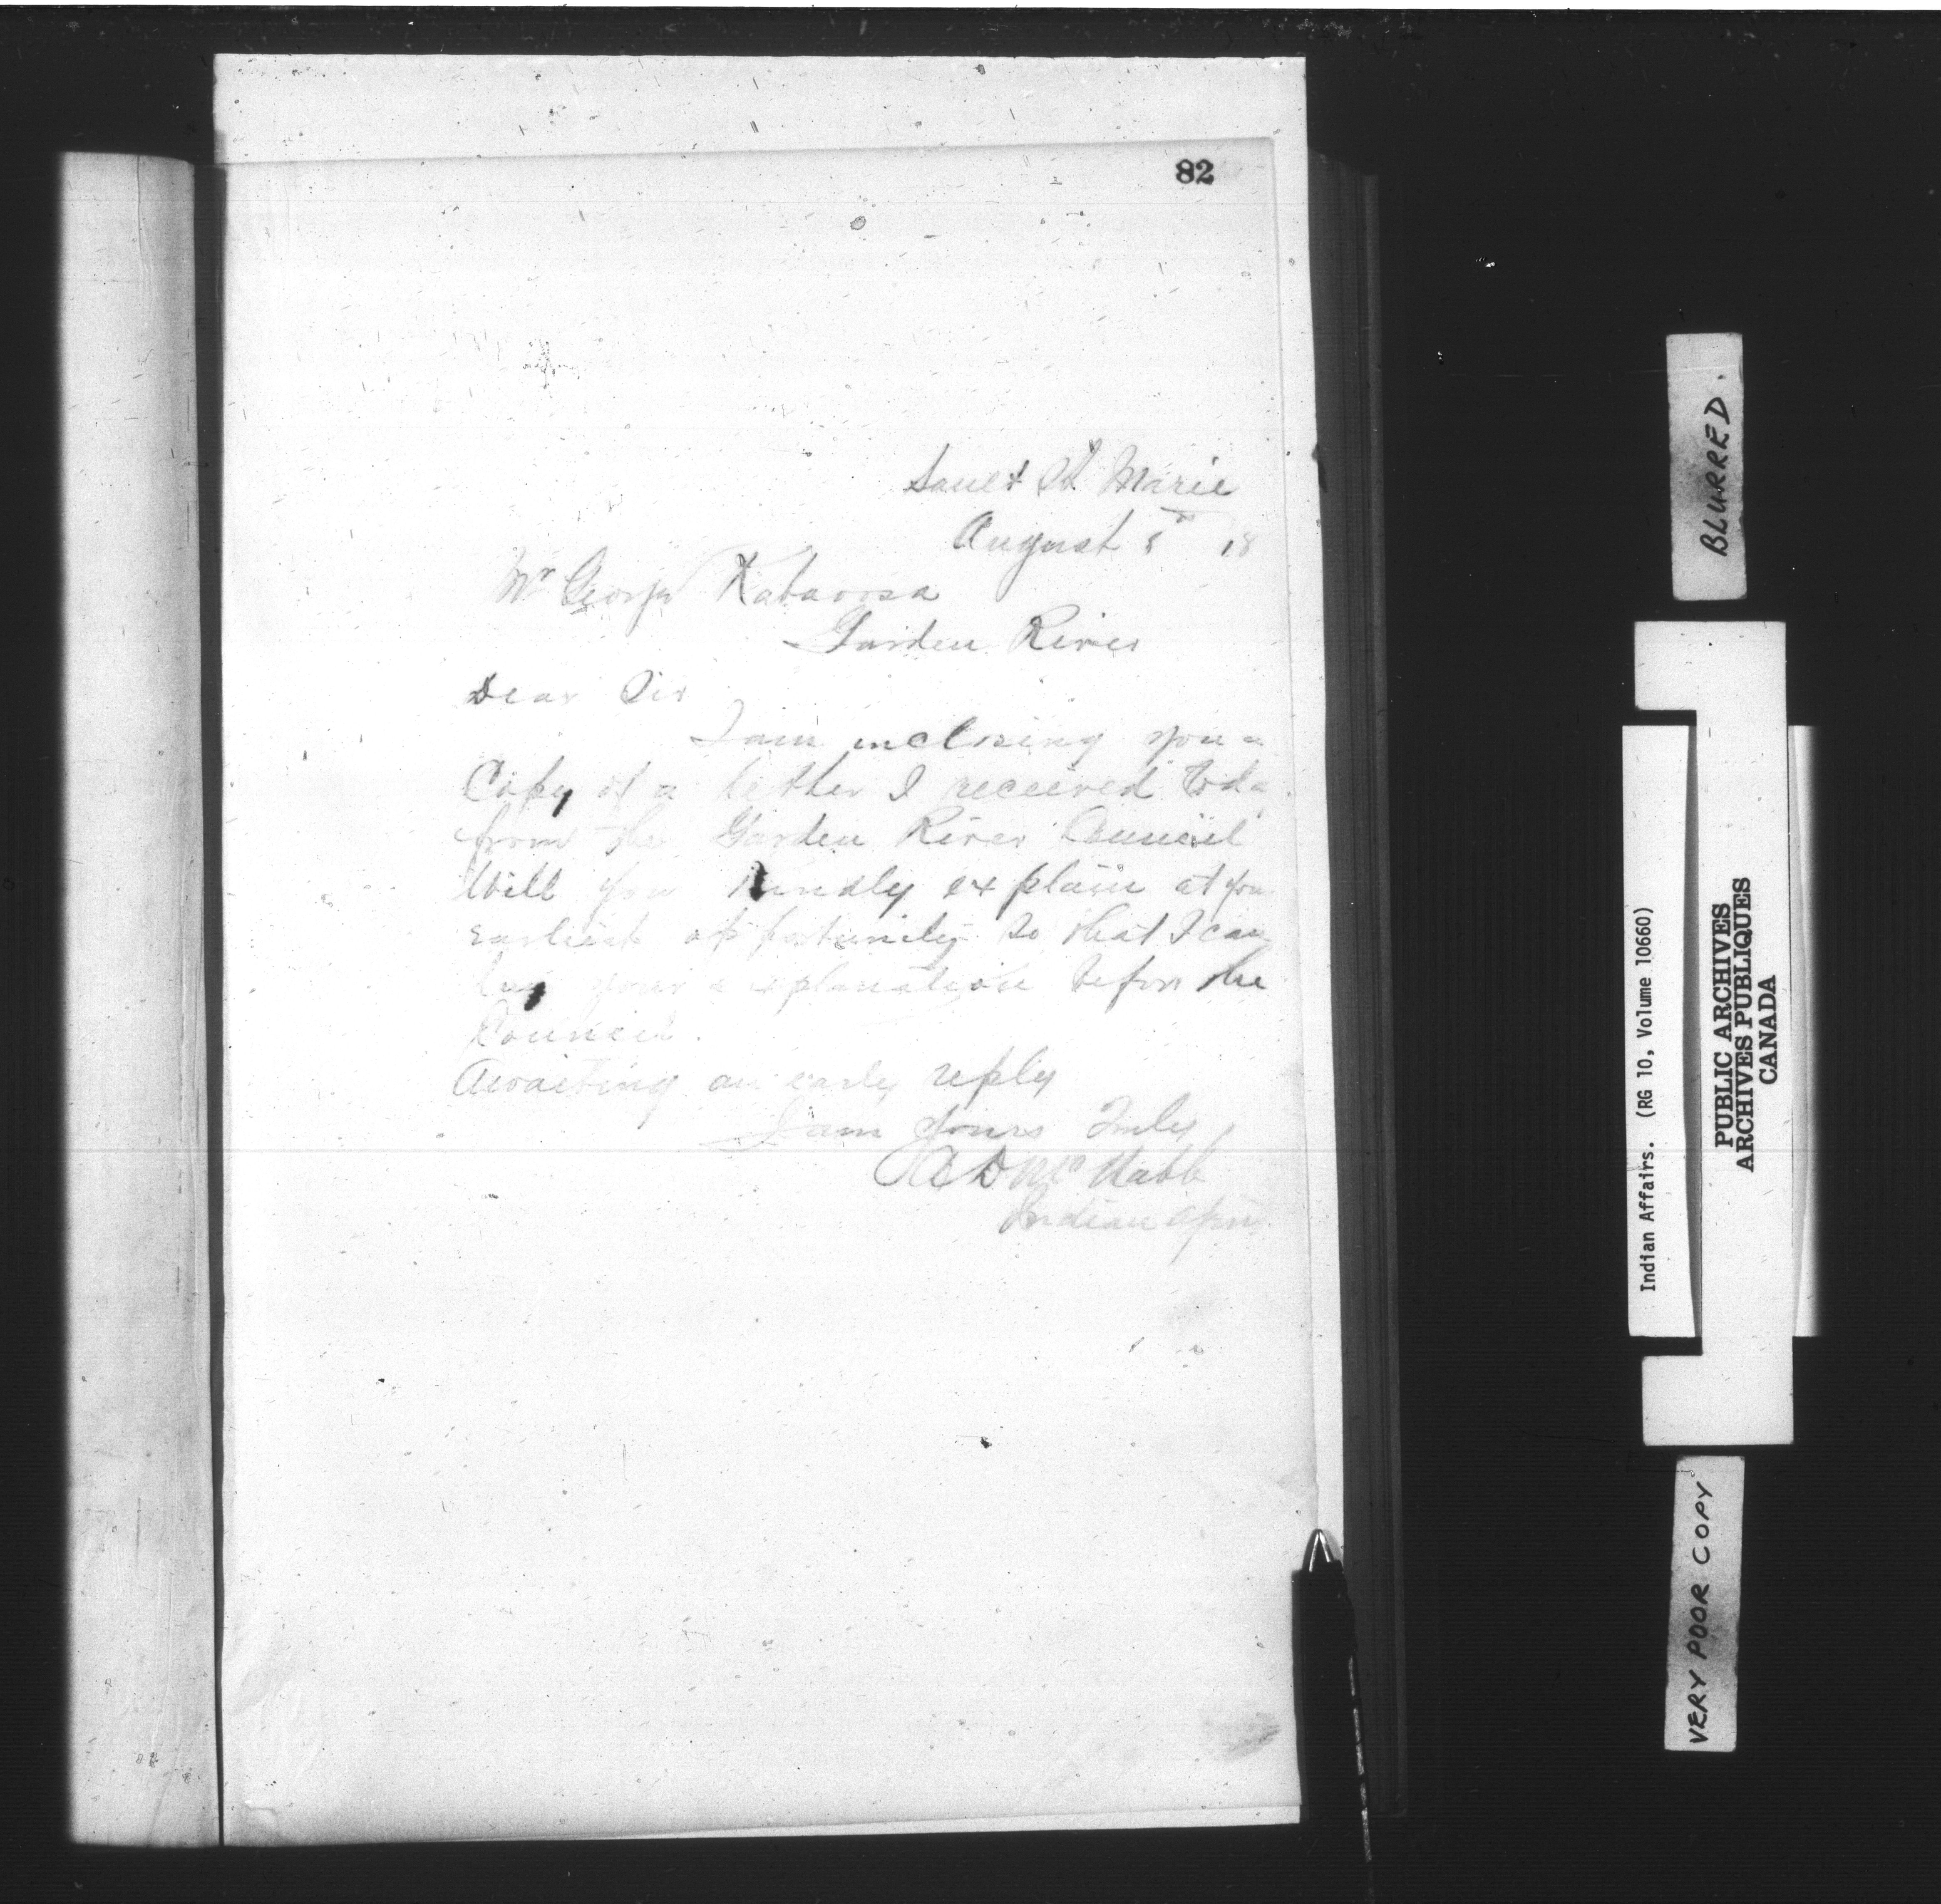 82
Sault St Marie
August 5th 18
Mr George Kabaoosa
Garden River
Dear Sir
I am inclosing you a
Copy of a letter I received toda
from the Garden River Council
Will you kindly explain at you
earliest opportunity so that I can
lay your explanation before the
Council.
Awaiting an early reply
I am Yours Truly
A D McNabb
Indian Agen
BLURRED.
Indian Affairs. (RG 10, Volume 10660)
PUBLIC ARCHIVES
ARCHIVES PUBLIQUES
CANADA
VERY POOR COPY